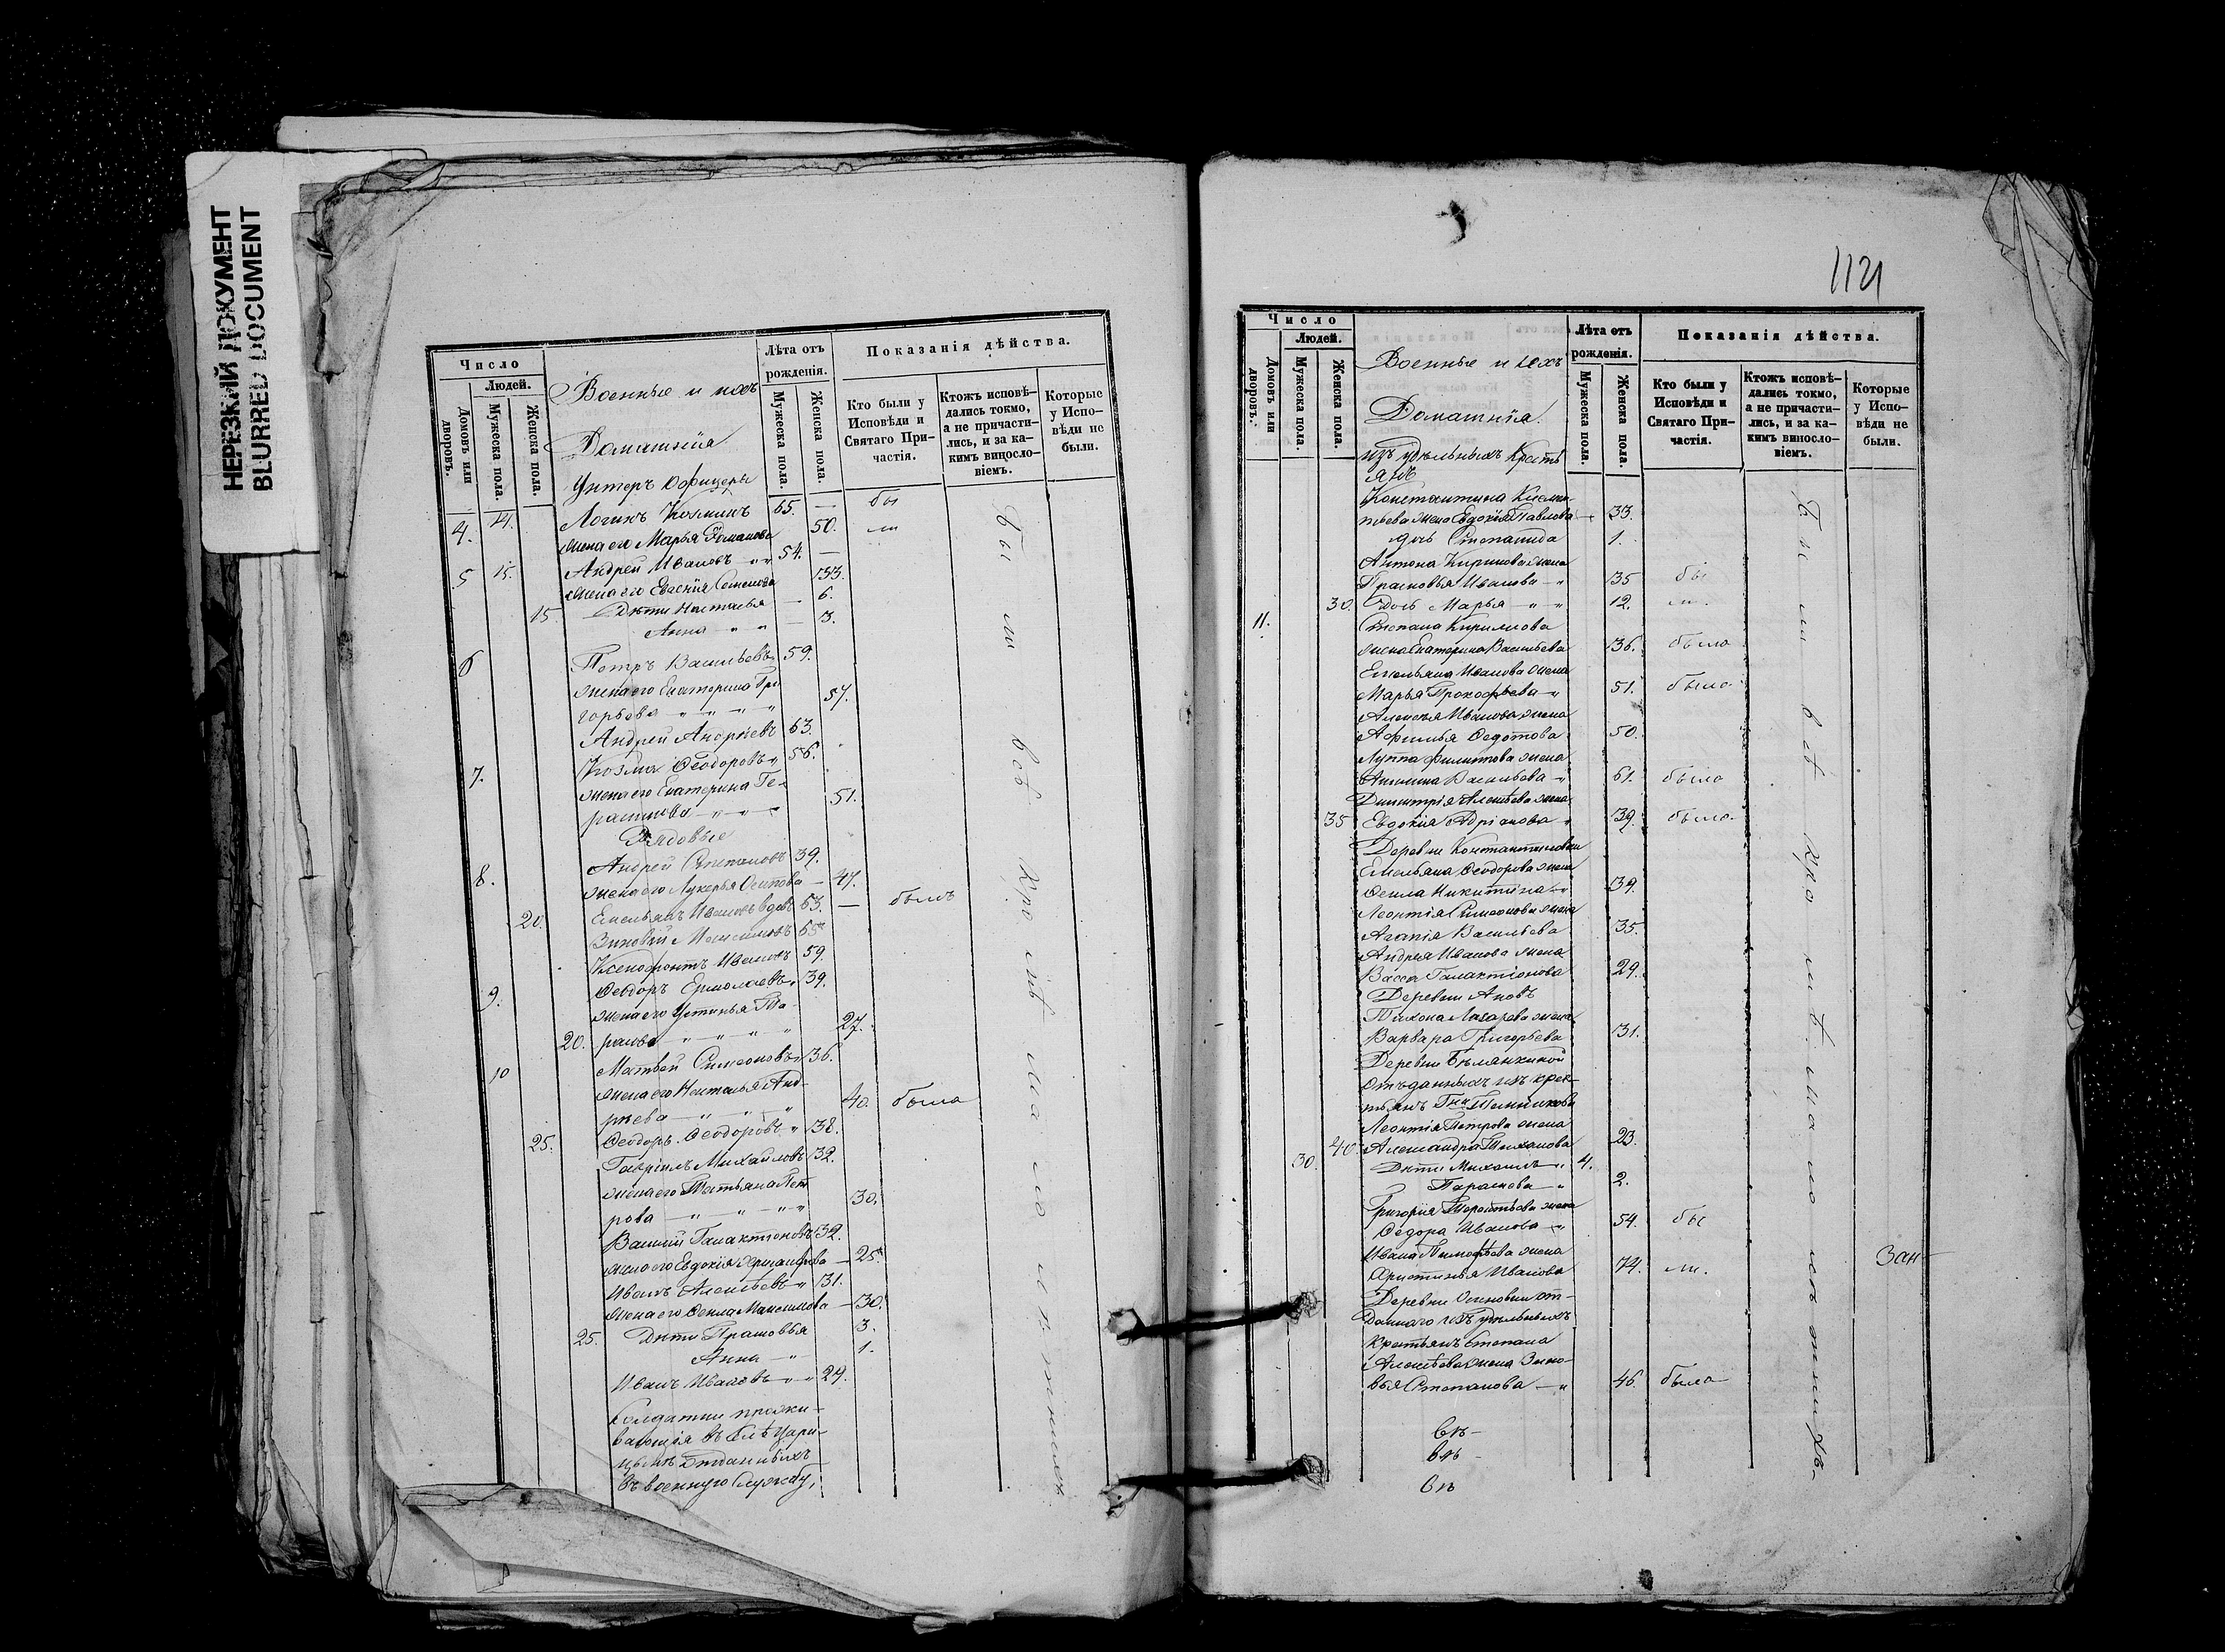 НЕРЕЗКИЙ ДОКУМЕНТ
BLURRED DOCUMENT
Число
Людей.
Домовъ или дворовъ.
Мужеска пола.
Женска пола.
Военные и ихъ
Домашнія
Лѣта отъ рожденія.
Мужеска пола.
Женска пола.
Показанія дѣйства.
Кто были у Исповѣди и Святаго Причастія.
Ктожъ исповѣдались токмо, а не причастились, и за какимъ винословіемъ.
Которые у Исповѣди не были.
Унтеръ Офицеры
4. 14. Логинъ Козминъ 65. — бы
жена его Марья Романова 50. ли
5 15. Андрей Ивановъ " " 54. —
жена его Евгенія Семенова 33.
15 Дѣти Настасья — 6.
Анна " " — 3.
6 Петръ Васильевъ 59.
жена его Екатерина Гри
горьева " " " " 57.
Андрей Андреевъ 63.
7. Козма Ѳеодоровъ " 56.
жена его Екатерина Ге-
расимова — " — " — 51.
Рядовые
8. Андрей Степановъ 39.
жена его Лукерья Осипова — 47.
20. Емельянъ Ивановъ вдовъ 63. — былъ
Зиновій Максимовъ 65
Ксенофонтъ Ивановъ 59.
9. Ѳеодоръ Ермолаевъ " 39.
жена его Устинья Та-
20. расова " " " " 27.
10 Матвей Симеоновъ " 36.
жена его Наталья Анд-
рѣева — " " " 40. была
25. Ѳеодоръ Ѳеодоровъ " 38.
Гавріилъ Михайловъ 32.
жена его Татьяна Пет
рова — " — " — " " 30.
Василій Галактіоновъ 32.
жена его Евдокія — 25.
Иванъ Алексѣевъ " 31.
жена его Ѳекла Максимова — 30.
25. Дѣти Прасковья 3.
Анна — " 1.
Иванъ Ивановъ " " 29.
Солдатки прожи-
вающія въ Селѣ Цари-
цынѣ отданныхъ
въ военную службу,
Были въ Кроме
1121
Число
Людей.
Домовъ или дворовъ.
Мужеска пола.
Женска пола.
Военные и ихъ
Домашнія.
Лѣта отъ рожденія.
Мужеска пола.
Женска пола.
Показанія дѣйства.
Кто были у Исповѣди и Святаго Причастія.
Ктожъ исповѣдались токмо, а не причастились, и за какимъ винословіемъ.
Которые у Исповѣди не были.
изъ удѣльныхъ Кресть
янъ
Константина
жена Евдокія Павлова — 33.
дочь Степанида 1.
Антона Кирилова жена
Прасковья Иванова — " 35 бы
30. дочь Марья — " " 12. ли.
11. Степана Кирилова
жена Екатерина Васильева 36. была
Емельяна Иванова жена
Марья Прокофьева — " 51. была
Алексѣя Иванова жена
Афимья Ѳедотова 50.
Луппа Филиппова жена
Акилина Васильева — " 61. была
Димитрія Алексѣева жена
35 Евдокія Адріанова " 39. была
Деревни Константиновки
Емельяна Ѳеодорова жена
Ѳекла Никитина — " 39.
Леонтія Симеонова жена
Агапія Васильева 35.
Андрея Иванова жена
Васса Галактіонова 29.
Деревни
Тихона Лазарева жена
Варвара Григорьева 31.
Деревни Бѣлянкиной
отъданныхъ изъ крес-
тьянъ Гна
Леонтія Петрова жена
40. Александра Тиханова 23.
30. Дѣти Михаилъ " 4.
Параскева " 2.
Григорія жена
Ѳедора Иванова — " 54. бы
Ивана Тимофѣева жена
Христинья Иванова 74. ли.
Деревни Осиновки от-
даннаго изъ удѣльныхъ
Крестьянъ Степана
Алексѣева жена Зино-
вья Степанова — " 46. была
Были въ Кроме